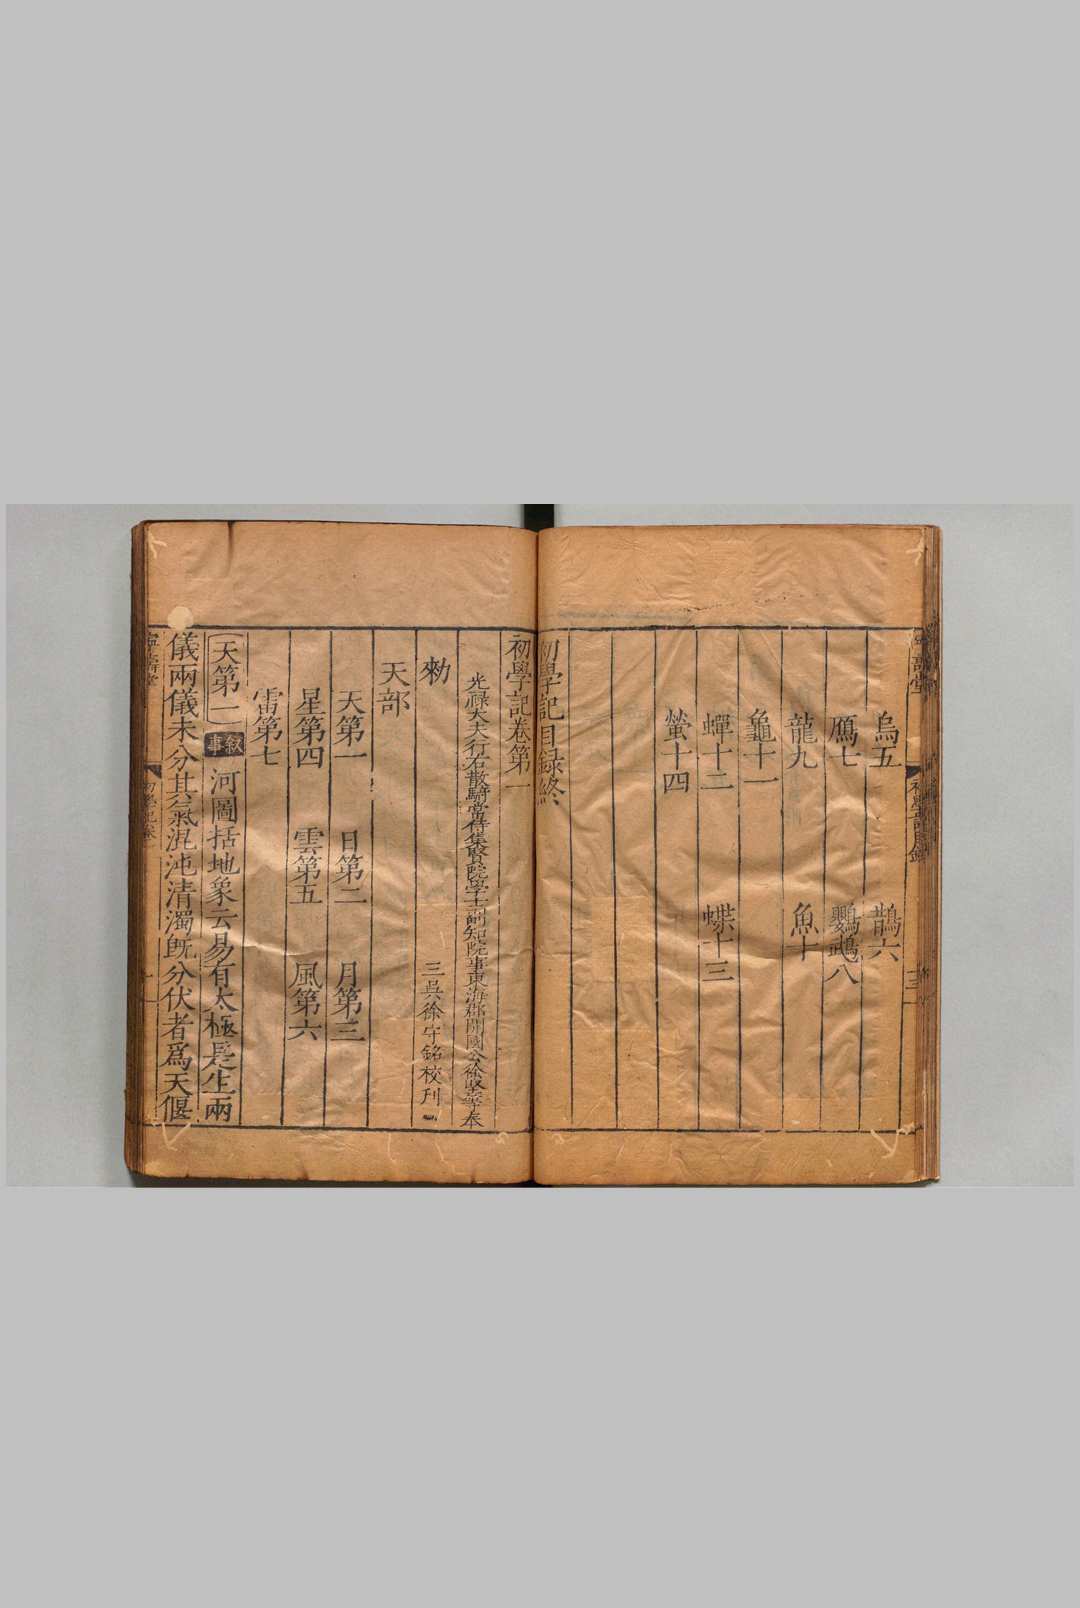 烏五 鵲六
鴈七 鸚鵡八
龍九 魚十
龜十一
蟬十二 蝶十三
螢十四
初學記目録終
初學記卷第一
光禄大夫行右散騎常侍集賢院學士副知院事東海郡開國公徐堅等奉
勑 三吳徐守銘校刊
天部
天第一 日第二 月第三
星第四 雲第五 風第六
雷第七
天第一 叙事 河圖括地象云易有太極是生兩
儀兩儀未分其氣混沌清濁旣分伏者爲天偃